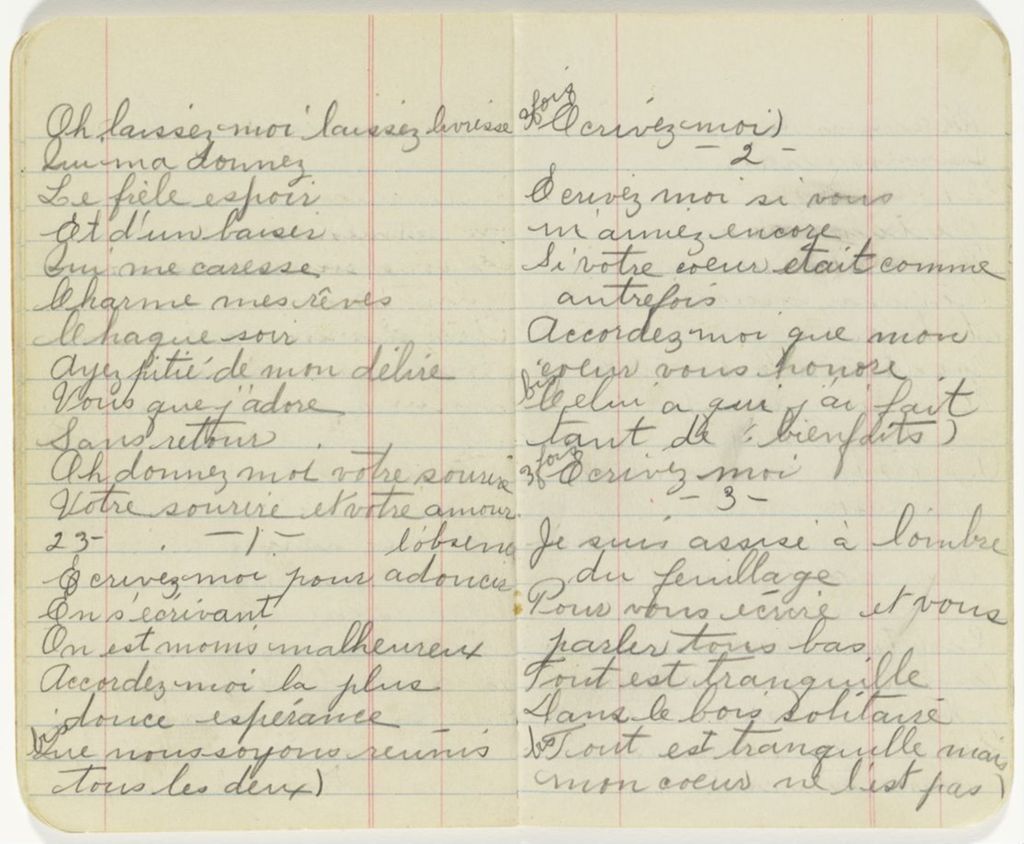 Oh laissez-moi laissez livresse
Qui ma donnez
Le frêle espoir
Et d'un baiser
Qui me caresse
Charme mes rêves
Chaque soir
Ayez pitié de mon délire
Vous que j'adore
Sans retour
Oh donnez moi votre sourire
Votre sourire et votre amour
23- -1- l'absence
Ecrivez-moi pour adoucir
En s'écrivant
On est moins malheureux
Accordez-moi la plus
douce espérance
bis Que nous soyons reunis
tous les deux)
3 fois Ecrivez-moi)
-2-
Ecrivez moi si vous
m'aimiez encore
Si votre coeur etait comme
autrefois
Accordez-moi que mon
coeur vous honore
bis Celui a qui j'ai fait
tant de bienfaits)
3 fois Ecrivez moi
-3-
Je suis assise à l'ombre
du feuillage
Pour vous écrire et vous
parler tous bas
Tout est tranquille
Dans le bois solitaire
bis Tout est tranquille mais
mon coeur ne l'est pas)